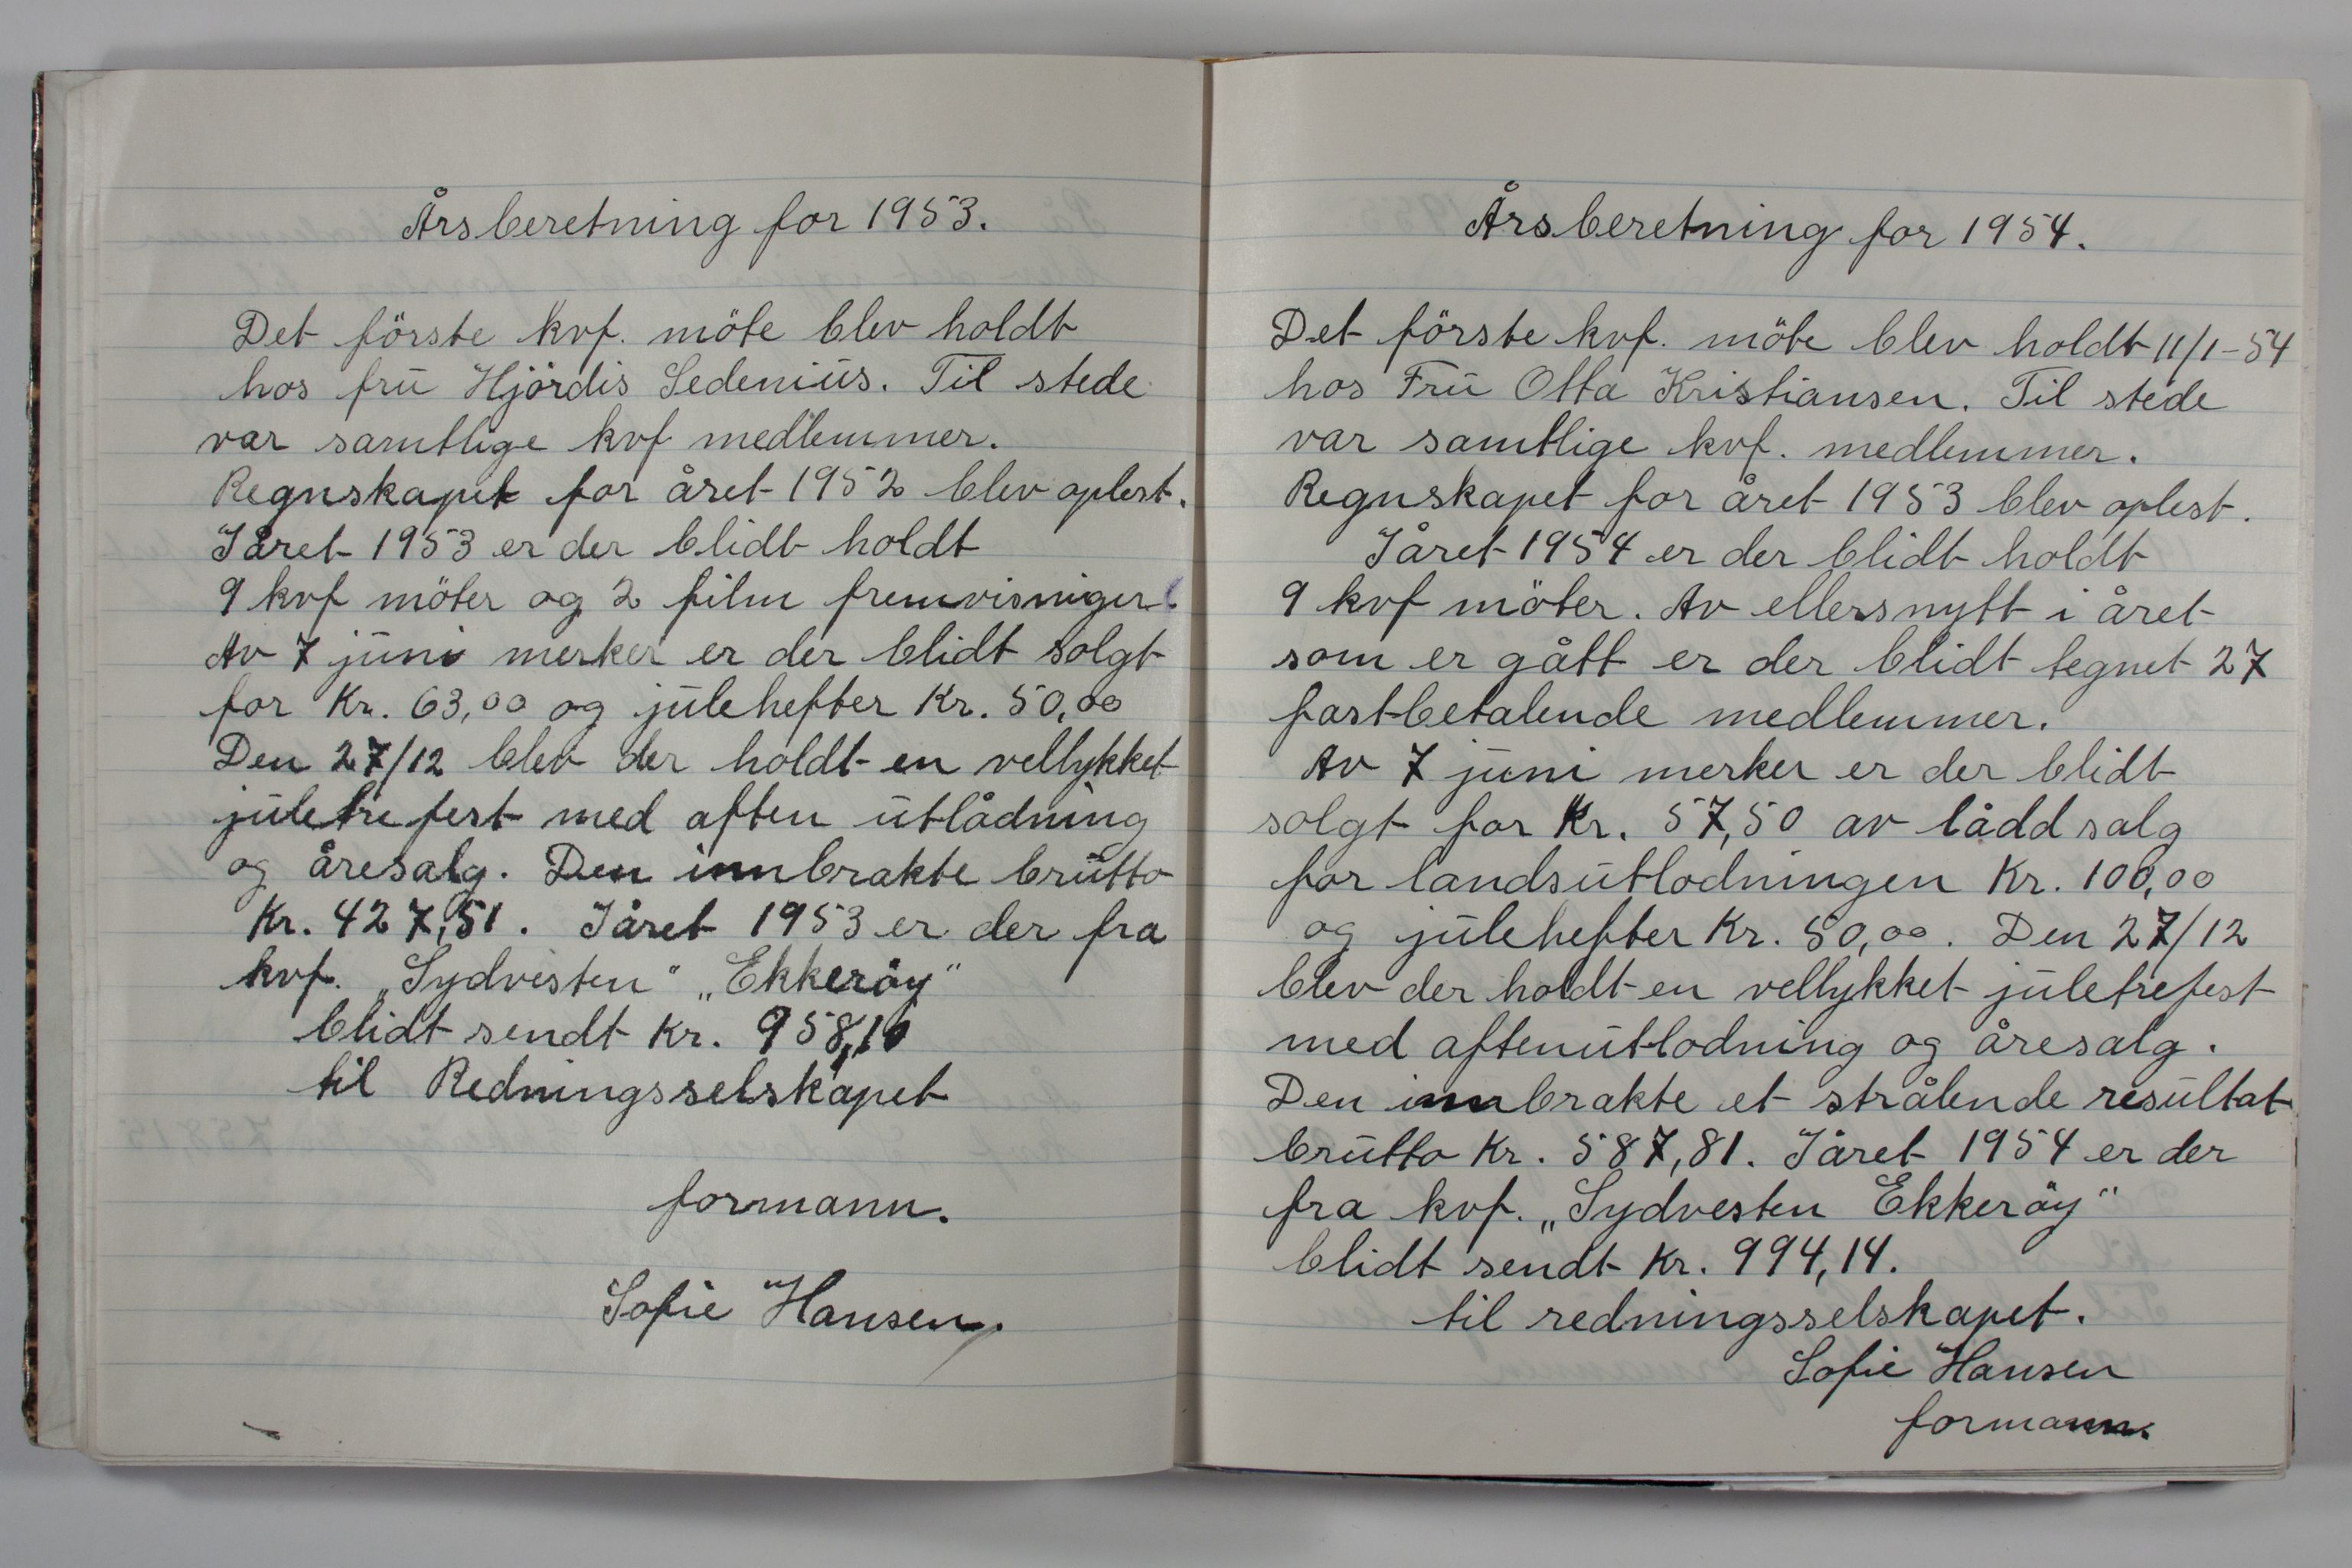 Årsberetning for 1953.
Det förste kvf. möte blev holdt
hos frū Hjördis Sedeniūs. Til stede
var samtlige kvf medlemmer.
Regnskapet for året 1952 blev oplest.
Iåret 1953 er der blidt holdt
9 kvf möter og 2 film fremvisniger.
Av 7 jūni merker er der blidt solgt
for Kr. 63,00 og jūlehefter Kr. 50,00
Den 27/12 blev der holdt en vellykket
jūletrefest med aften ūtlådning
og åresalg. Den innbrakte brūtto
Kr. 427,51. Iåret 1953 er der fra
kvf. „Sydvesten" „Ekkeröy"
blidt sendt Kr. 958,10
til Redningsselskapet
formann.
Sofie Hansen.
Årsberetning for 1954.
Det förste kvf. möte blev holdt 11/1-54
hos Frū Otta Kristiansen. Til stede
var samtlige kvf. medlemmer.
Regnskapet for året 1953 blev oplest.
Iåret 1954 er der blidt holdt
9 kvf möter. Av ellers nytt i året
som er gått er der blidt tegnet 27
fastbetalende medlemmer.
Av 7 jūni merker er der blidt
solgt for Kr. 57,50 av lådd salg
for landsūtlodningen Kr. 100,00
og jūlehefter Kr. 50,00. Den 27/12
blev der holdt en vellykket jūletrefest
med aftenūtlodning og åresalg.
Den innbrakte et strålende resūltat
brūtto Kr. 587,81. Iåret 1954 er der
fra kvf. „Sydvesten Ekkeröy"
blidt sendt Kr. 994,14.
til redningsselskapet.
Sofie Hansen
formann.